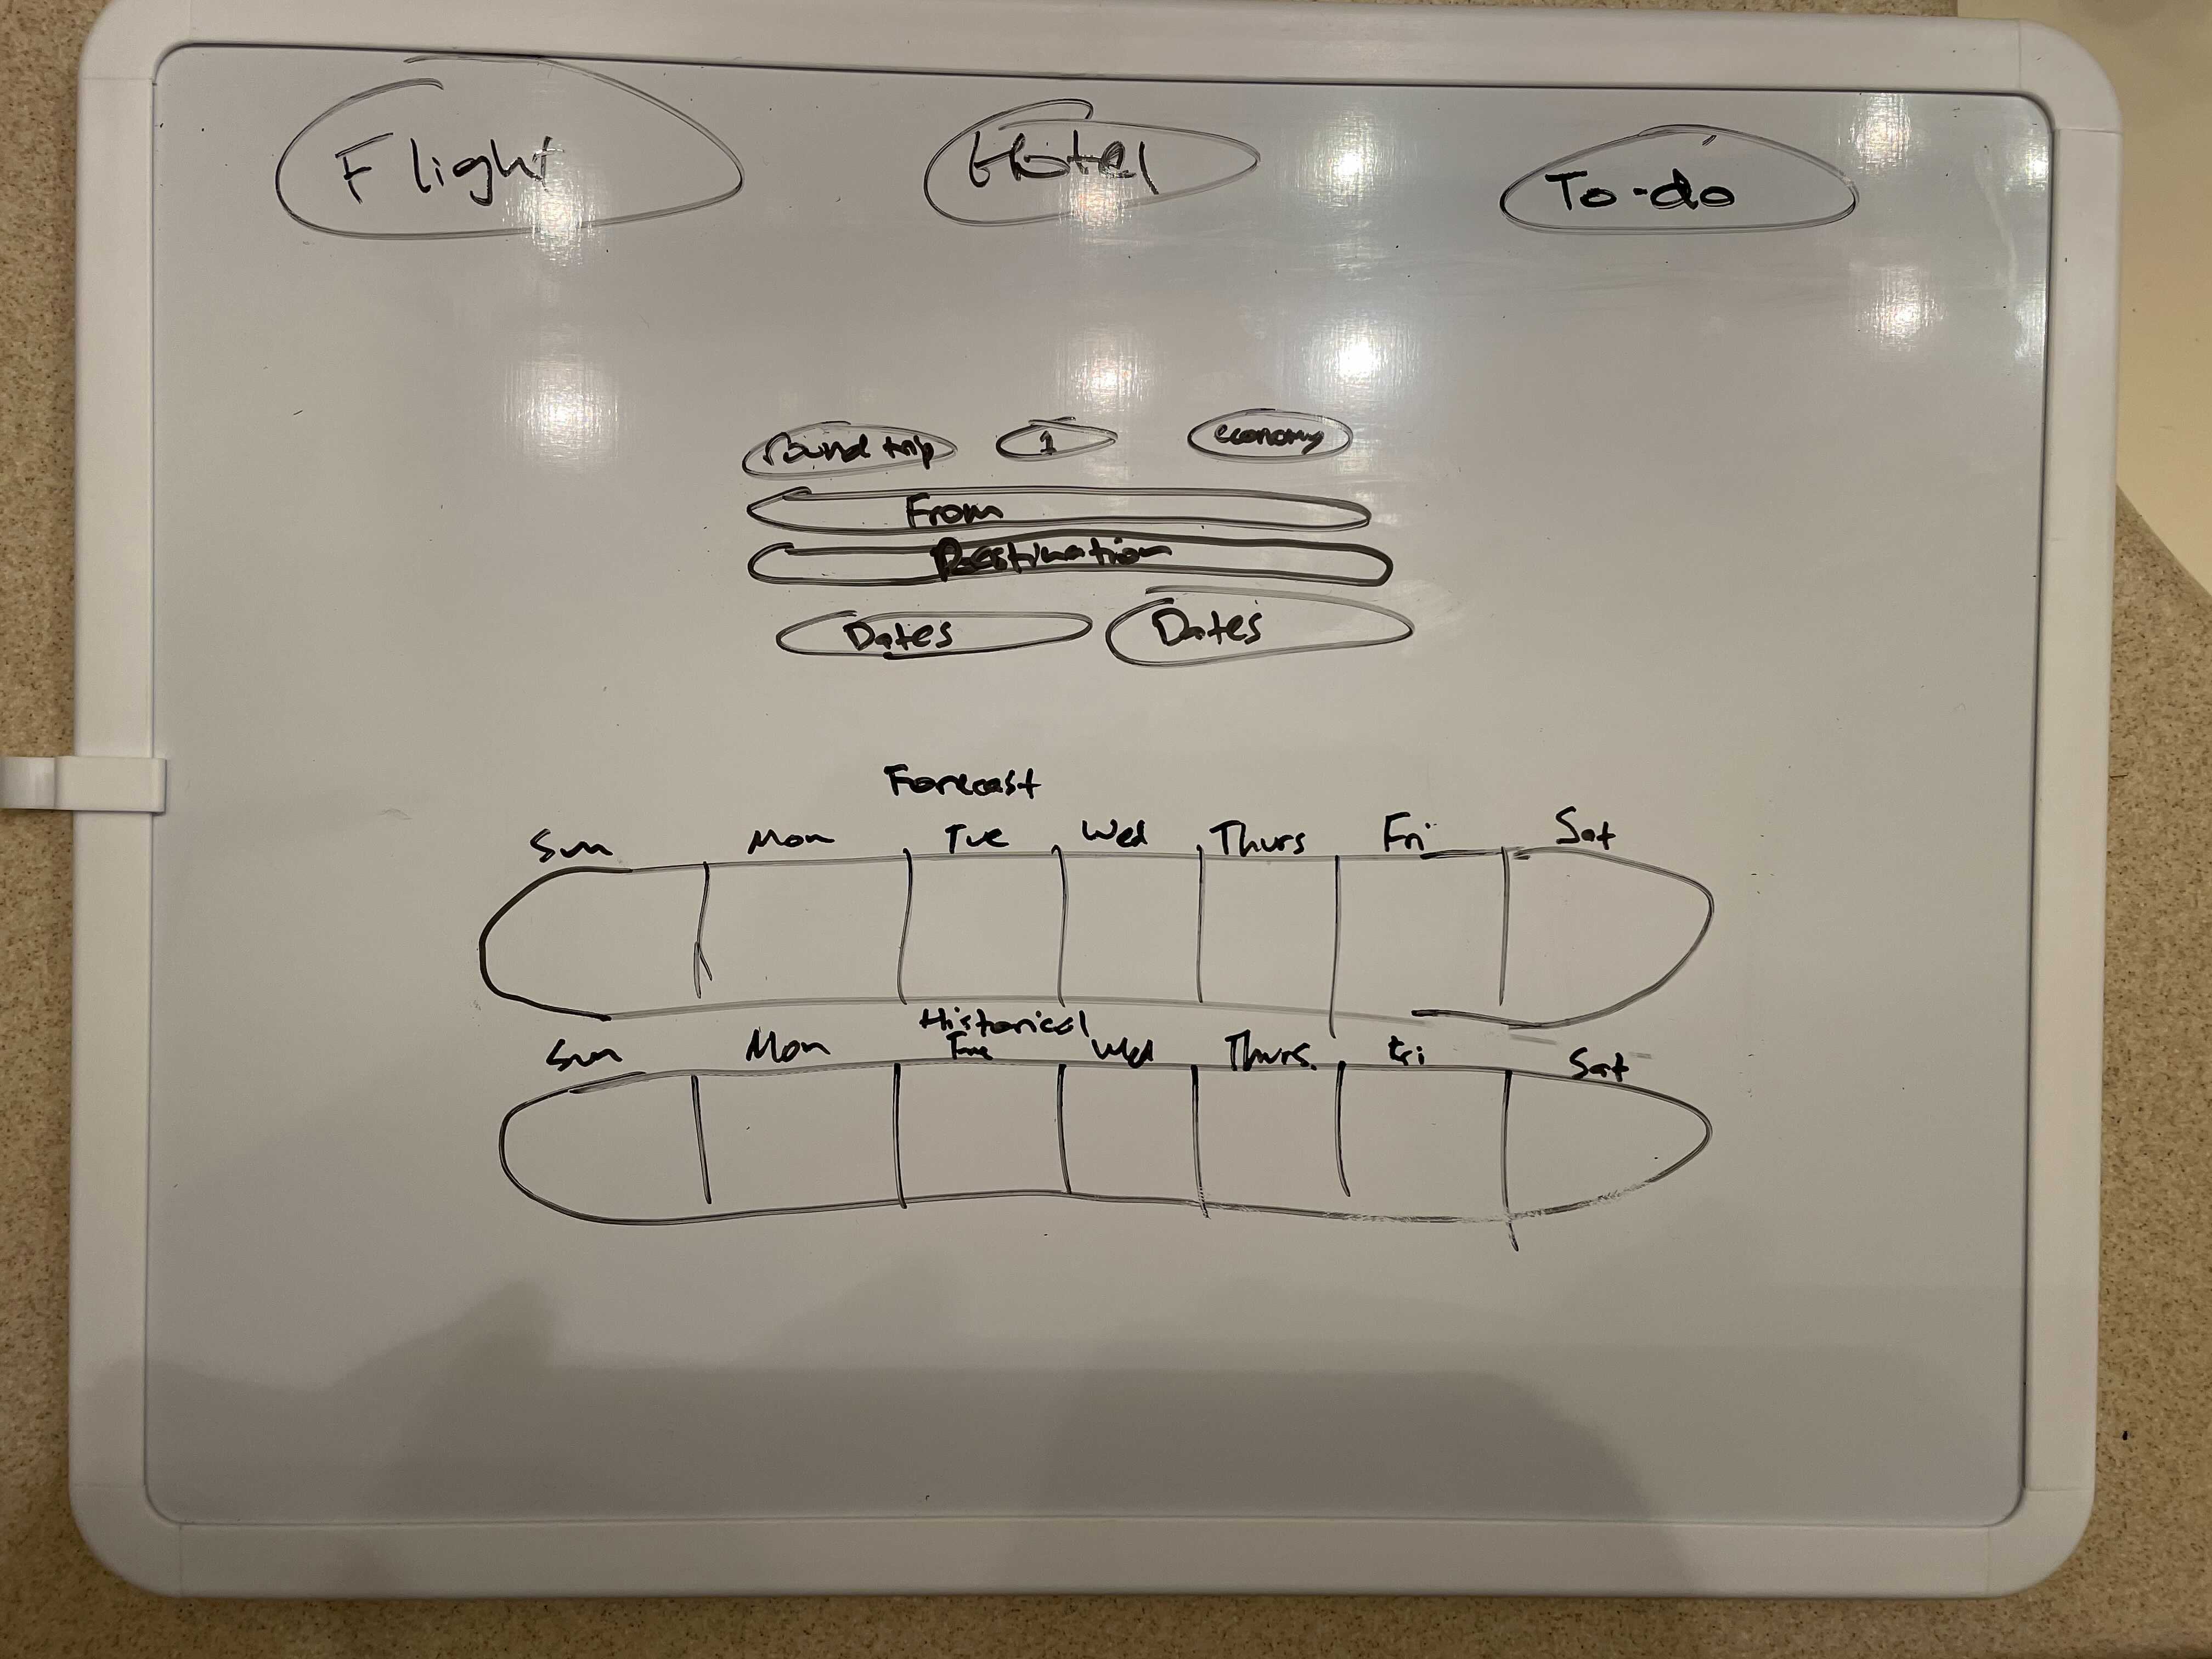 Flight Hotel To-do
round trip 1 economy
From
Destination
Dates Dates
Forecast
Sun Mon Tue Wed Thurs Fri Sat
Historical
Sun Mon Tue Wed Thurs Fri Sat